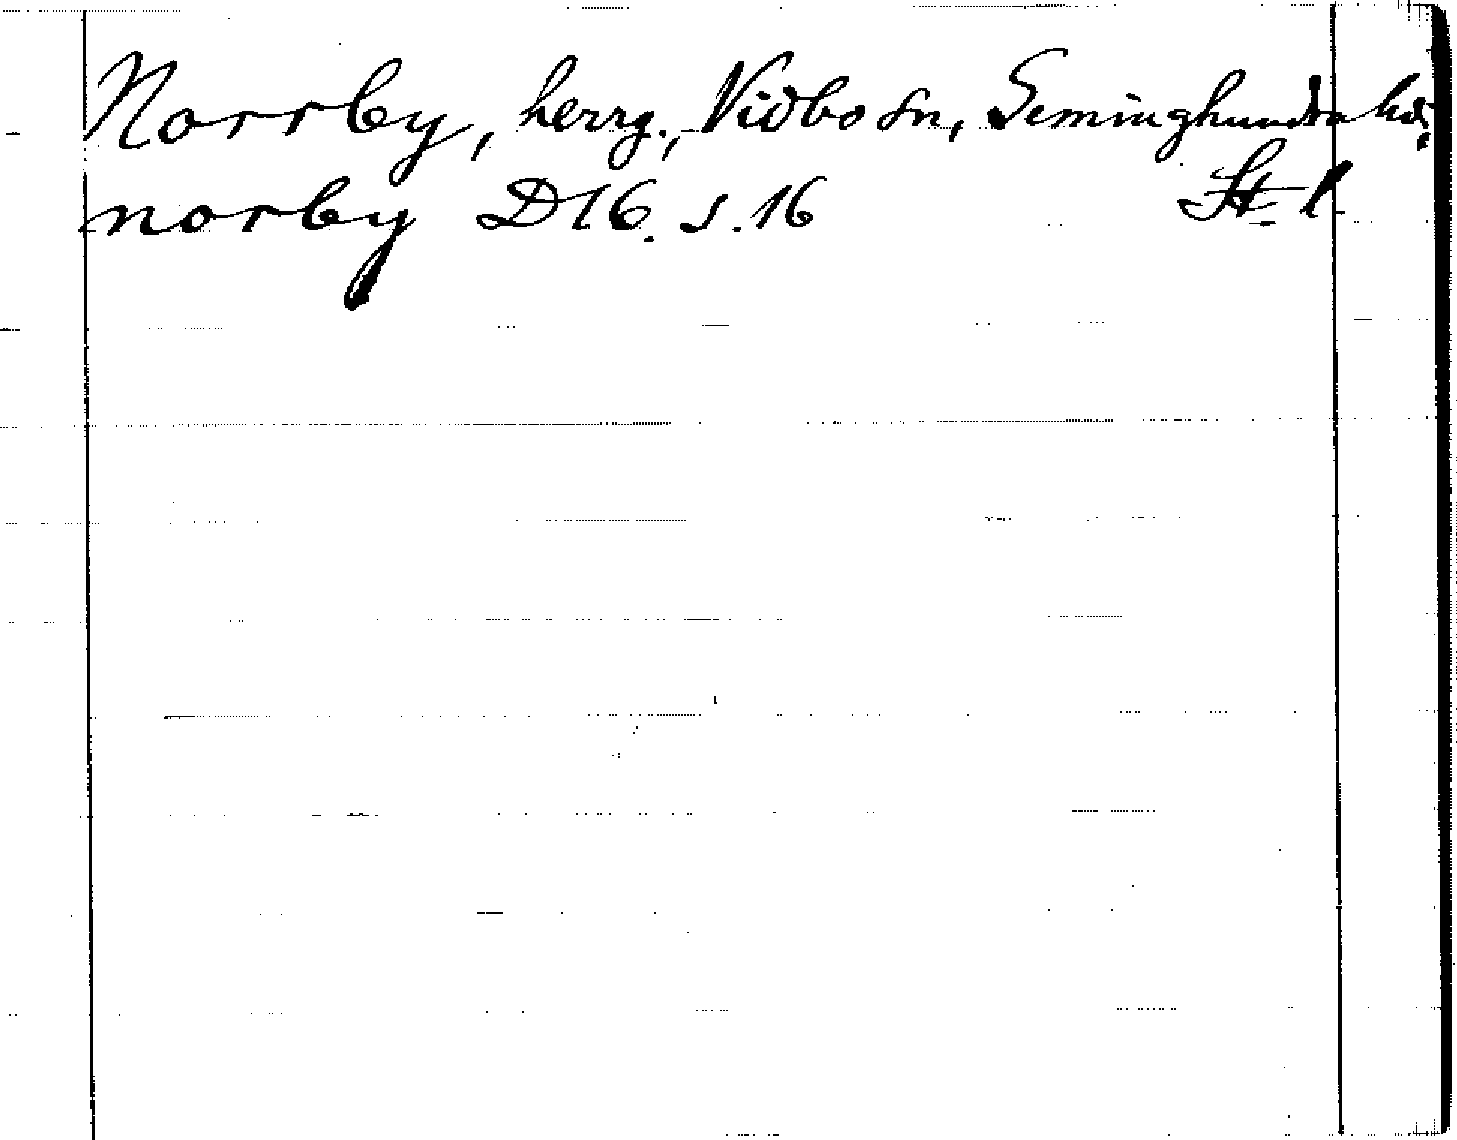 Norrby, herrg., Vidbo sn, Seminghundra hd.
norby D16. s.16 St. l.